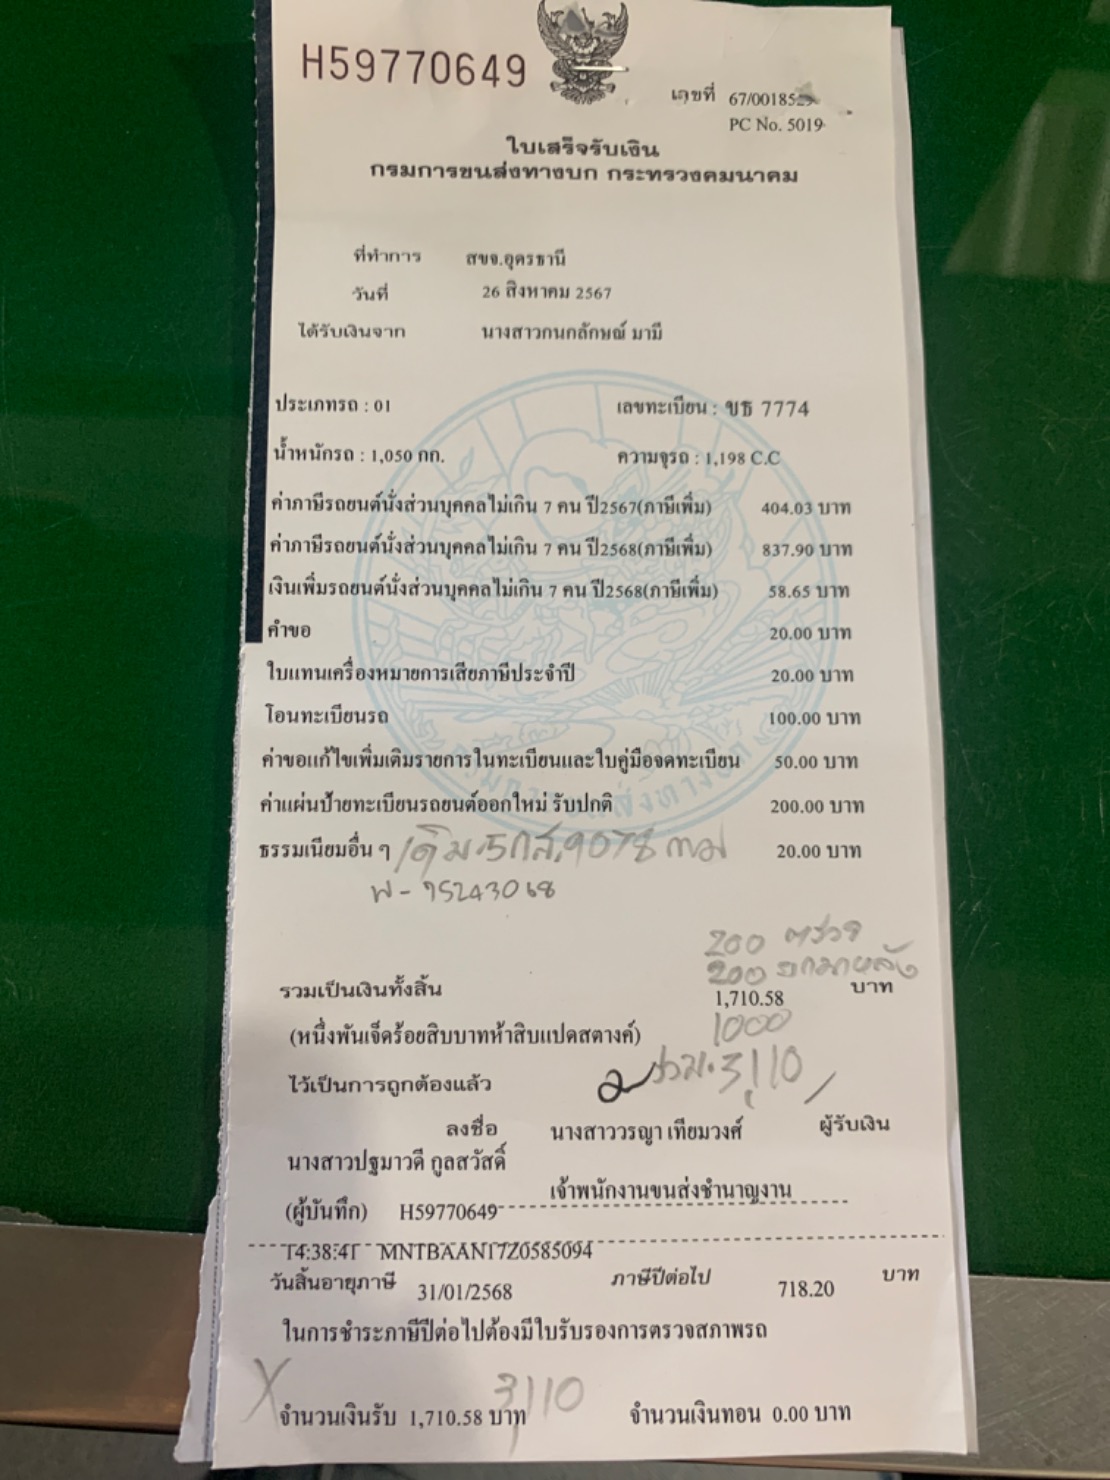 H59770649
เลขที่ 67/00185
PC No. 5019
ใบเสร็จรับเงิน
กรมการขนส่งทางบก กระทรวงคมนาคม
ที่ทำการ สขจ.อุดรธานี
วันที่ 26 สิงหาคม 2567
ได้รับเงินจาก นางสาวกนกลักษณ์ มามี
ประเภทรถ : 01 เลขทะเบียน : ขธ 7774
น้ำหนักรถ : 1,050 กก. ความจุรถ : 1,198 C.C
ค่าภาษีรถยนต์นั่งส่วนบุคคลไม่เกิน 7 คน ปี2567(ภาษีเพิ่ม) 404.03 บาท
ค่าภาษีรถยนต์นั่งส่วนบุคคลไม่เกิน 7 คน ปี2568(ภาษีเพิ่ม) 837.90 บาท
เงินเพิ่มรถยนต์นั่งส่วนบุคคลไม่เกิน 7 คน ปี2568(ภาษีเพิ่ม) 58.65 บาท
คำขอ 20.00 บาท
ใบแทนเครื่องหมายการเสียภาษีประจำปี 20.00 บาท
โอนทะเบียนรถ 100.00 บาท
ค่าขอแก้ไขเพิ่มเติมรายการในทะเบียนและใบคู่มือจดทะเบียน 50.00 บาท
ค่าแผ่นป้ายทะเบียนรถยนต์ออกใหม่ รับปกติ 200.00 บาท
ธรรมเนียมอื่น ๆ เดิม 5กส.9078 กม 20.00 บาท
200 ตรวจ
200
รวมเป็นเงินทั้งสิ้น 1,710.58 บาท
(หนึ่งพันเจ็ดร้อยสิบบาทห้าสิบแปดสตางค์) 1000
ไว้เป็นการถูกต้องแล้ว รวม 3,110
ลงชื่อ นางสาววรญา เทียมวงศ์ ผู้รับเงิน
นางสาวปฐมาวดี กูลสวัสดิ์
เจ้าพนักงานขนส่งชำนาญงาน
(ผู้บันทึก) H59770649
14:38:41 MNTBAAN17Z0585094
วันสิ้นอายุภาษี 31/01/2568 ภาษีปีต่อไป 718.20 บาท
ในการชำระภาษีปีต่อไปต้องมีใบรับรองการตรวจสภาพรถ
X 3,110
จำนวนเงินรับ 1,710.58 บาท จำนวนเงินทอน 0.00 บาท